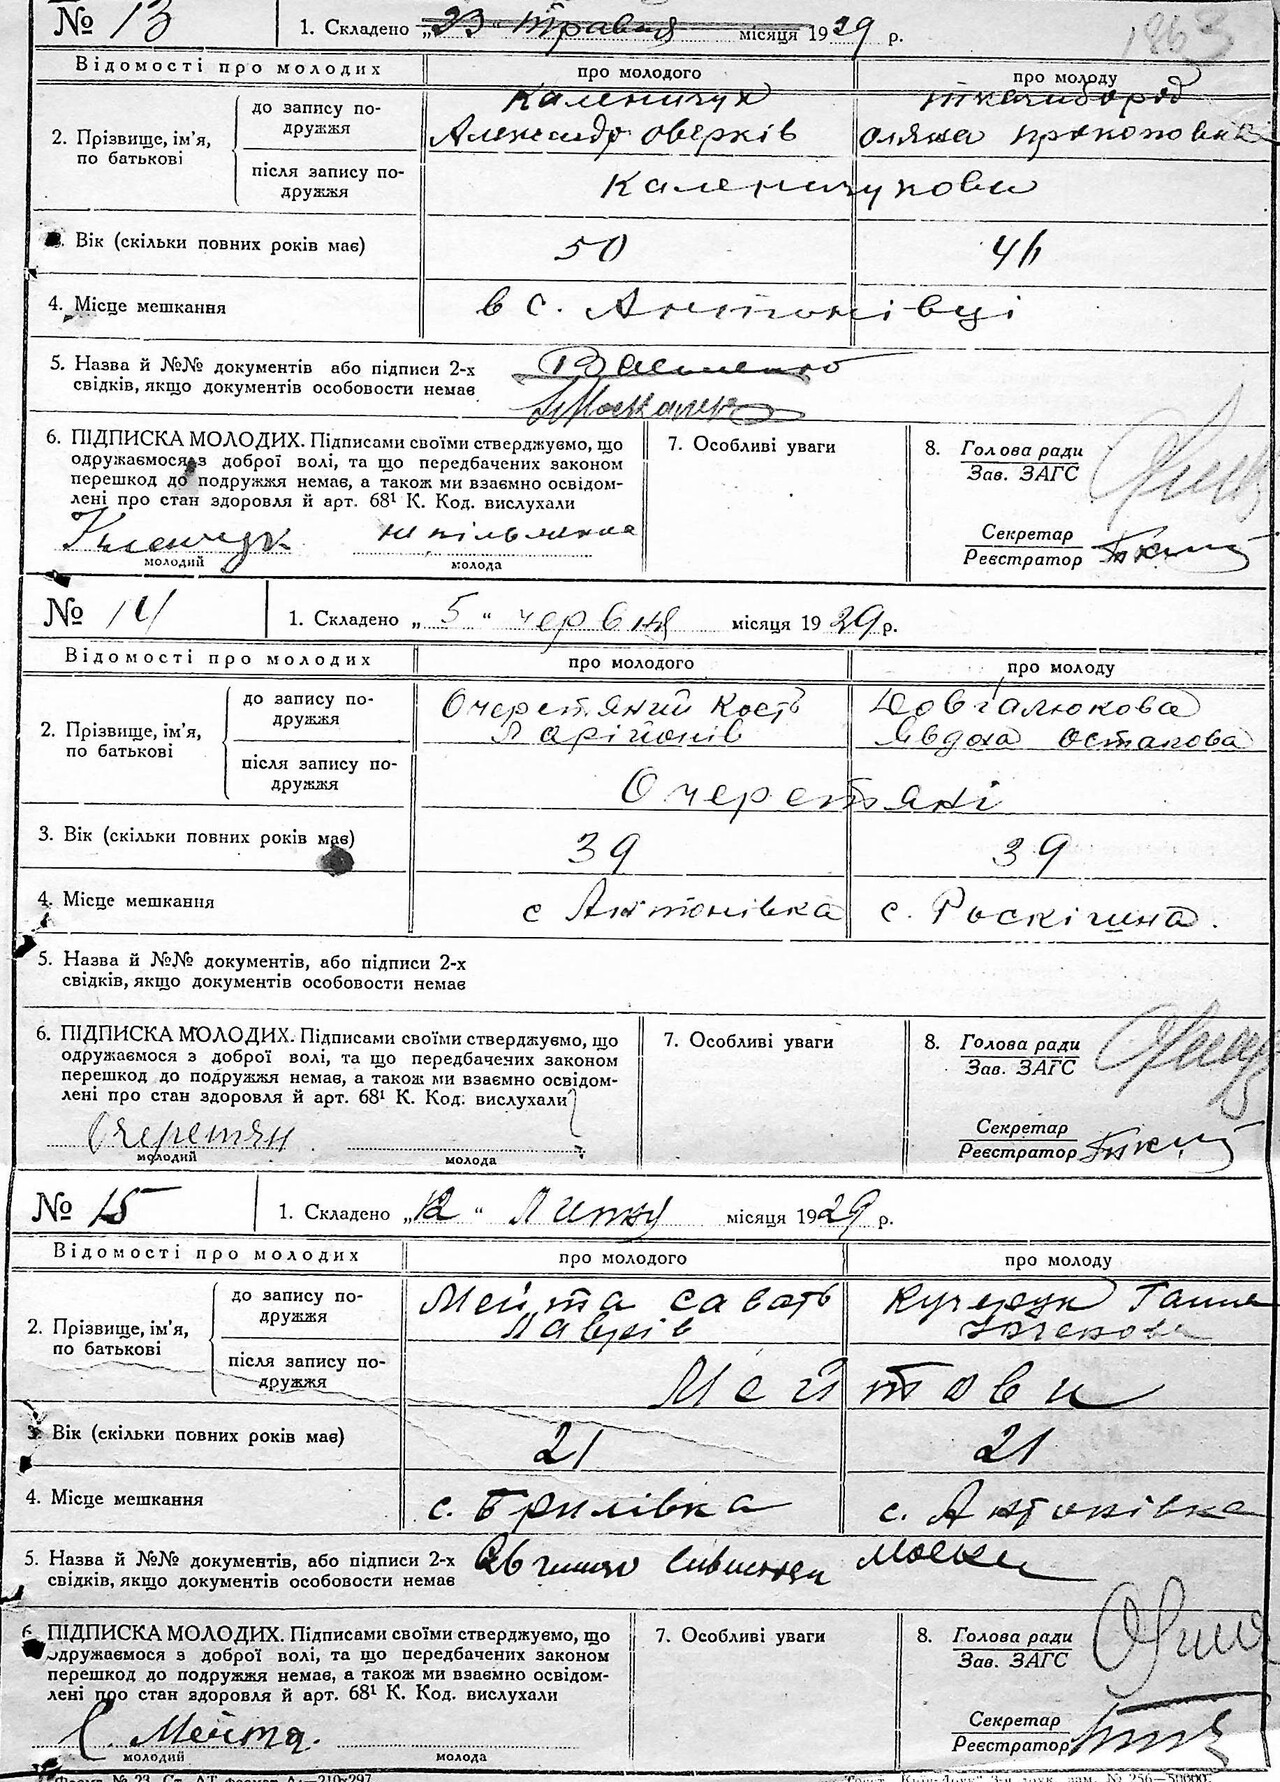 № 13 1. Складено „23" травня місяця 1929 р. 1863
Відомості про молодих про молодого про молоду
2. Прізвище, ім'я, по батькові
до запису подружжя
Каленичук
Александр Оверків Оляна Прокоповна
після запису подружжя Каленичукови
3. Вік (скільки повних років має) 50
4. Місце мешкання в с. Антонівці
5. Назва й №№ документів або підписи 2-х
свідків, якщо документів особовости немає
6. ПІДПИСКА МОЛОДИХ. Підписами своїми стверджуємо, що
одружаємося з доброї волі, та що передбачених законом
перешкод до подружжя немає, а також ми взаємно освідом-
лені про стан здоровля й арт. 68¹ К. Код. вислухали
неписьменна
молодий молода
7. Особливі уваги
8. Голова ради
Зав. ЗАГС
Секретар
Реєстратор
№ 14 1. Складено „5" червня місяця 1929 р.
Відомості про молодих про молодого про молоду
2. Прізвище, ім'я, по батькові
до запису подружжя
Очеретяний Кость Довгалюкова
Ларіонів Явдоха Остапова
після запису подружжя Очеретяні
3. Вік (скільки повних років має) 39 39
4. Місце мешкання с Антонівка с. Роскішна.
5. Назва й №№ документів, або підписи 2-х
свідків, якщо документів особовости немає
6. ПІДПИСКА МОЛОДИХ. Підписами своїми стверджуємо, що
одружаємося з доброї волі, та що передбачених законом
перешкод до подружжя немає, а також ми взаємно освідом-
лені про стан здоровля й арт. 68¹ К. Код. вислухали
Очеретян
молодий молода
7. Особливі уваги
8. Голова ради
Зав. ЗАГС
Секретар
Реєстратор
№ 15 1. Складено „12" Липня місяця 1929 р.
Відомості про молодих про молодого про молоду
2. Прізвище, ім'я, по батькові
до запису подружжя
Мейта Сават Кучерук Ганна
Лаврів
після запису подружжя Мейтови
3. Вік (скільки повних років має) 21 21
4. Місце мешкання с. Брилівка с. Антонівка
5. Назва й №№ документів, або підписи 2-х
свідків, якщо документів особовости немає
6. ПІДПИСКА МОЛОДИХ. Підписами своїми стверджуємо, що
одружаємося з доброї волі, та що передбачених законом
перешкод до подружжя немає, а також ми взаємно освідом-
лені про стан здоровля й арт. 68¹ К. Код. вислухали
С. Мейта.
молодий молода
7. Особливі уваги
8. Голова ради
Зав. ЗАГС
Секретар
Реєстратор